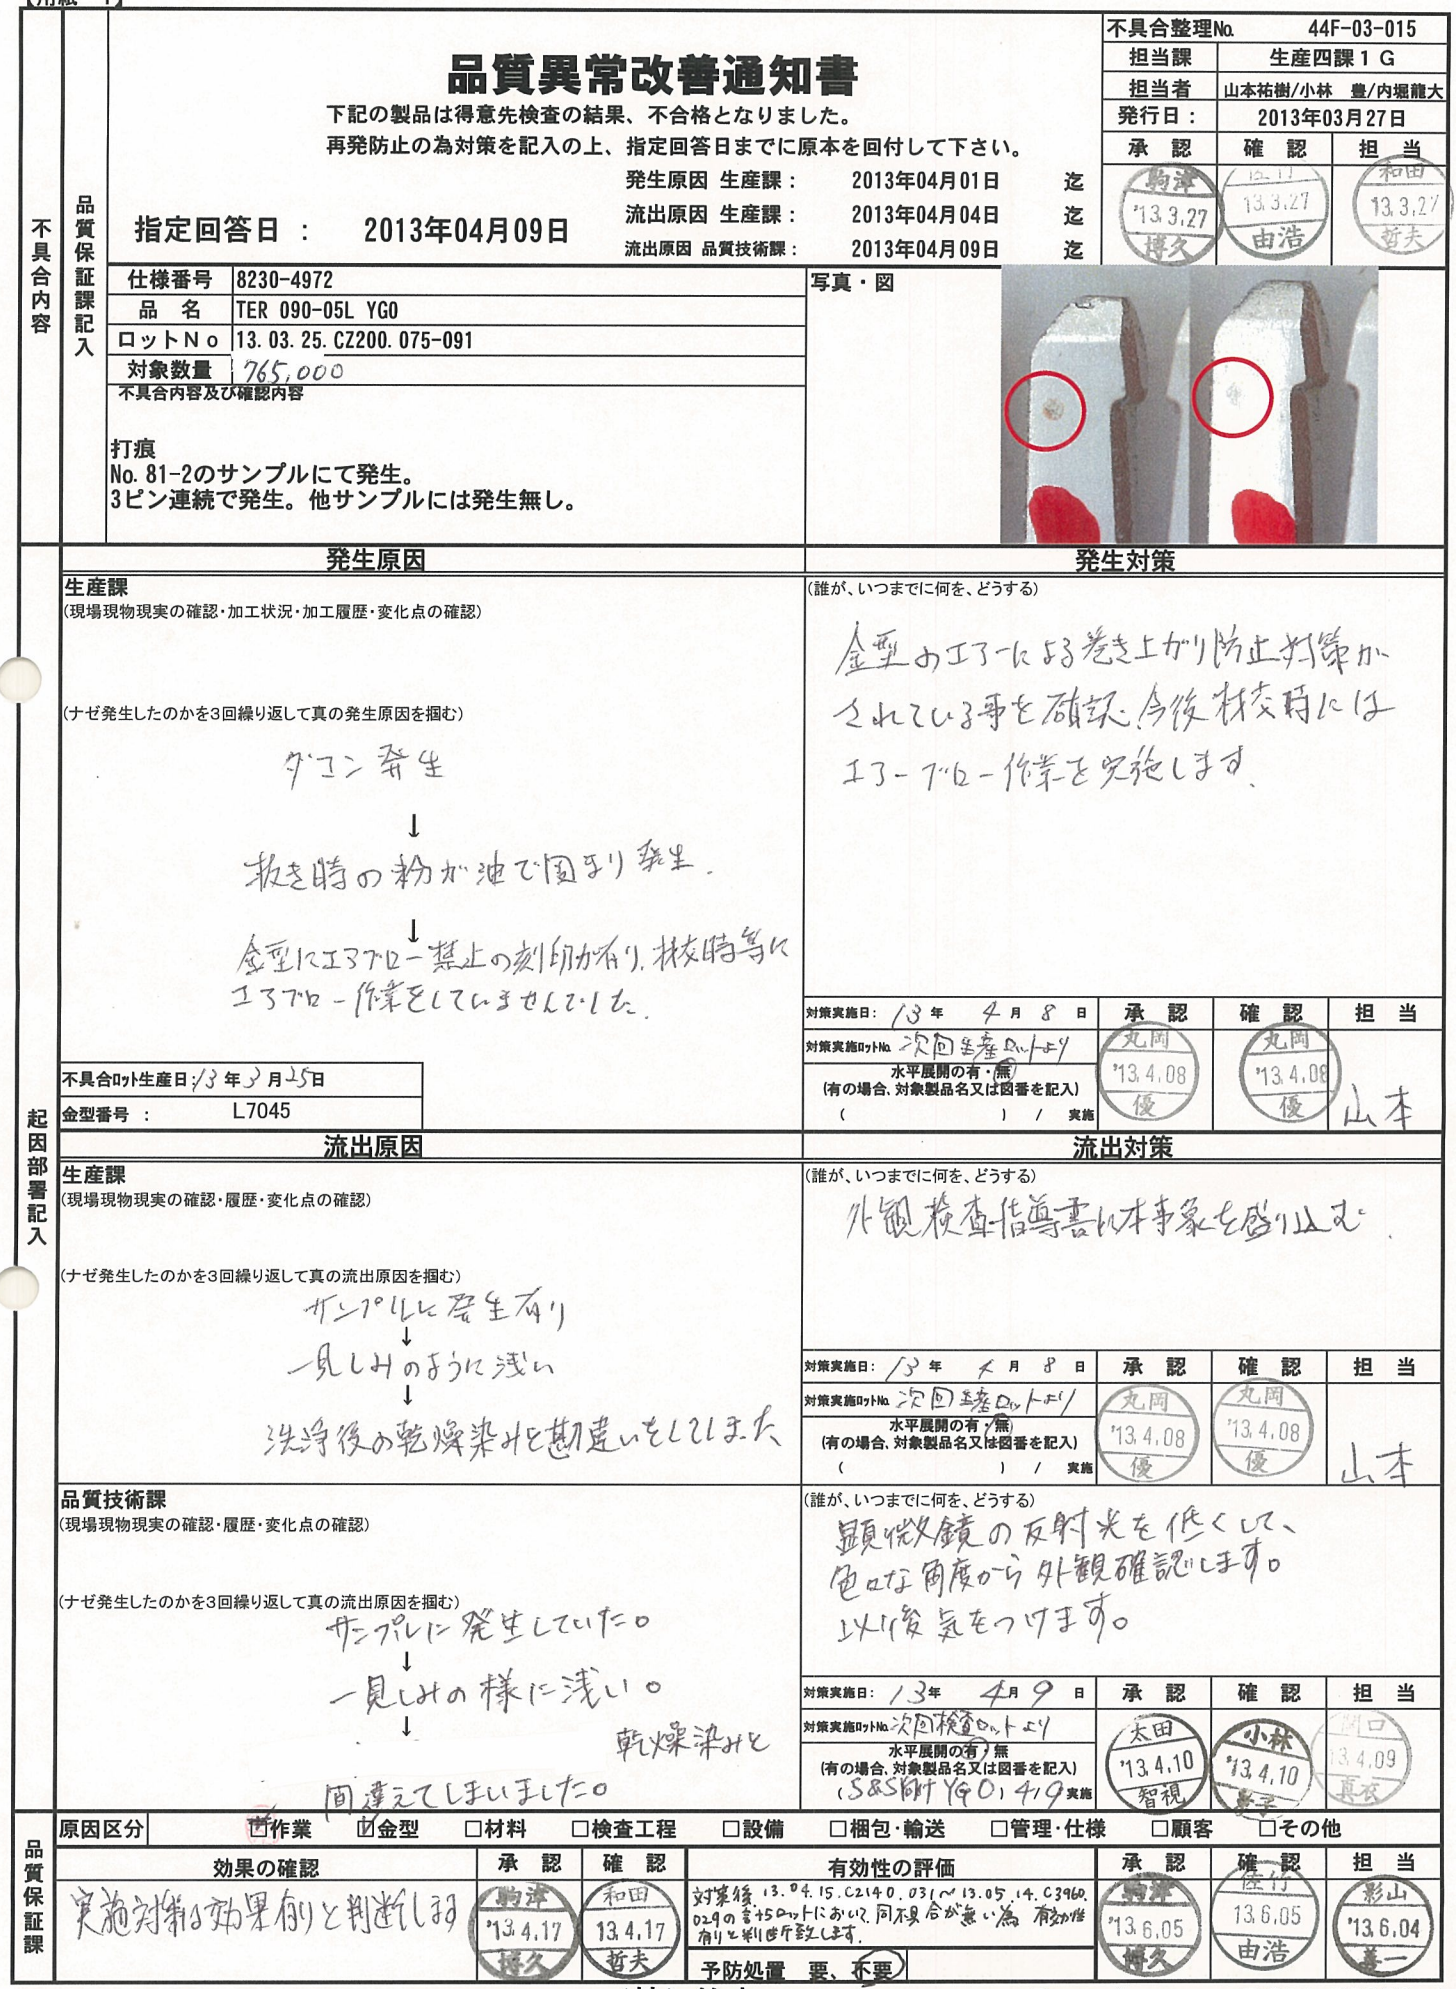 不具合整理No. 44F-03-015
担当課 生産四課1G
担当者 山本祐樹/小林 豊/内堀龍大
発行日: 2013年03月27日
承 認 確 認 担 当
駒津 '13.3.27 博久
13.3.27 由浩
和田 13.3.27 哲夫
品質異常改善通知書
下記の製品は得意先検査の結果、不合格となりました。
再発防止の為対策を記入の上、指定回答日までに原本を回付して下さい。
発生原因 生産課: 2013年04月01日 迄
流出原因 生産課: 2013年04月04日 迄
流出原因 品質技術課: 2013年04月09日 迄
指定回答日 : 2013年04月09日
不具合内容
品質保証課記入
仕様番号 8230-4972
品 名 TER 090-05L YG0
ロットNo 13.03.25.CZ200.075-091
対象数量 765,000
不具合内容及び確認内容
打痕
No.81-2のサンプルにて発生。
3ピン連続で発生。他サンプルには発生無し。
写真・図
起因部署記入
発生原因
生産課
(現場現物現実の確認・加工状況・加工履歴・変化点の確認)
(ナゼ発生したのかを3回繰り返して真の発生原因を掴む)
ダコン発生
↓
抜き時の粉が油で固まり発生.
↓
金型にエアブロー禁止の刻印が有り、材交時等に
エアブロー作業をしていませんでした.
不具合ロット生産日:13年3月25日
金型番号 : L7045
発生対策
(誰が、いつまでに何を、どうする)
金型のエアーによる巻き上がり防止対策が
されている事を確認.今後材交時には
エアーブロー作業を実施します.
対策実施日: 13年 4月 8日
対策実施ロットNo. 次回生産ロットより
水平展開の有・無
(有の場合、対象製品名又は図番を記入)
( ) / 実施
承 認 確 認 担 当
丸岡 '13.4.08 優
丸岡 '13.4.08 優
山本
流出原因
生産課
(現場現物現実の確認・履歴・変化点の確認)
(ナゼ発生したのかを3回繰り返して真の流出原因を掴む)
サンプルに発生有り
↓
一見しみのように浅い
↓
洗浄後の乾燥染みと勘違いをしてしました
流出対策
(誰が、いつまでに何を、どうする)
外観検査指導書に本事象を盛り込む.
対策実施日: 13年 4月 8日
対策実施ロットNo. 次回生産ロットより
水平展開の有・無
(有の場合、対象製品名又は図番を記入)
( ) / 実施
承 認 確 認 担 当
丸岡 '13.4.08 優
丸岡 '13.4.08 優
山本
品質技術課
(現場現物現実の確認・履歴・変化点の確認)
(ナゼ発生したのかを3回繰り返して真の流出原因を掴む)
サンプルに発生していた。
↓
一見しみの様に浅い。
↓
乾燥染みと
間違えてしまいました。
(誰が、いつまでに何を、どうする)
顕微鏡の反射光を低くして、
色々な角度から外観確認します。
以後気をつけます。
対策実施日: 13年 4月 9日
対策実施ロットNo. 次回検査ロットより
水平展開の有・無
(有の場合、対象製品名又は図番を記入)
YG0) 4/9 実施
承 認 確 認 担 当
太田 '13.4.10 智視
小林 '13.4.10
関口 13.4.09 真衣
品質保証課
原因区分 作業 金型 □材料 □検査工程 □設備 □梱包・輸送 □管理・仕様 □顧客 □その他
効果の確認
実施対策は効果有りと判断します
承 認 確 認
駒津 '13.4.17 博久
和田 13.4.17 哲夫
有効性の評価
対策後、13.04.15.CZ140.031～13.05.14.C3960.
029の計5ロットにおいて、同不具合が無い為 有効性
有りと判断致します.
予防処置 要、不要
承 認 確 認 担 当
駒津 '13.6.05 博久
佐竹 13.6.05 由浩
影山 '13.6.04 善一